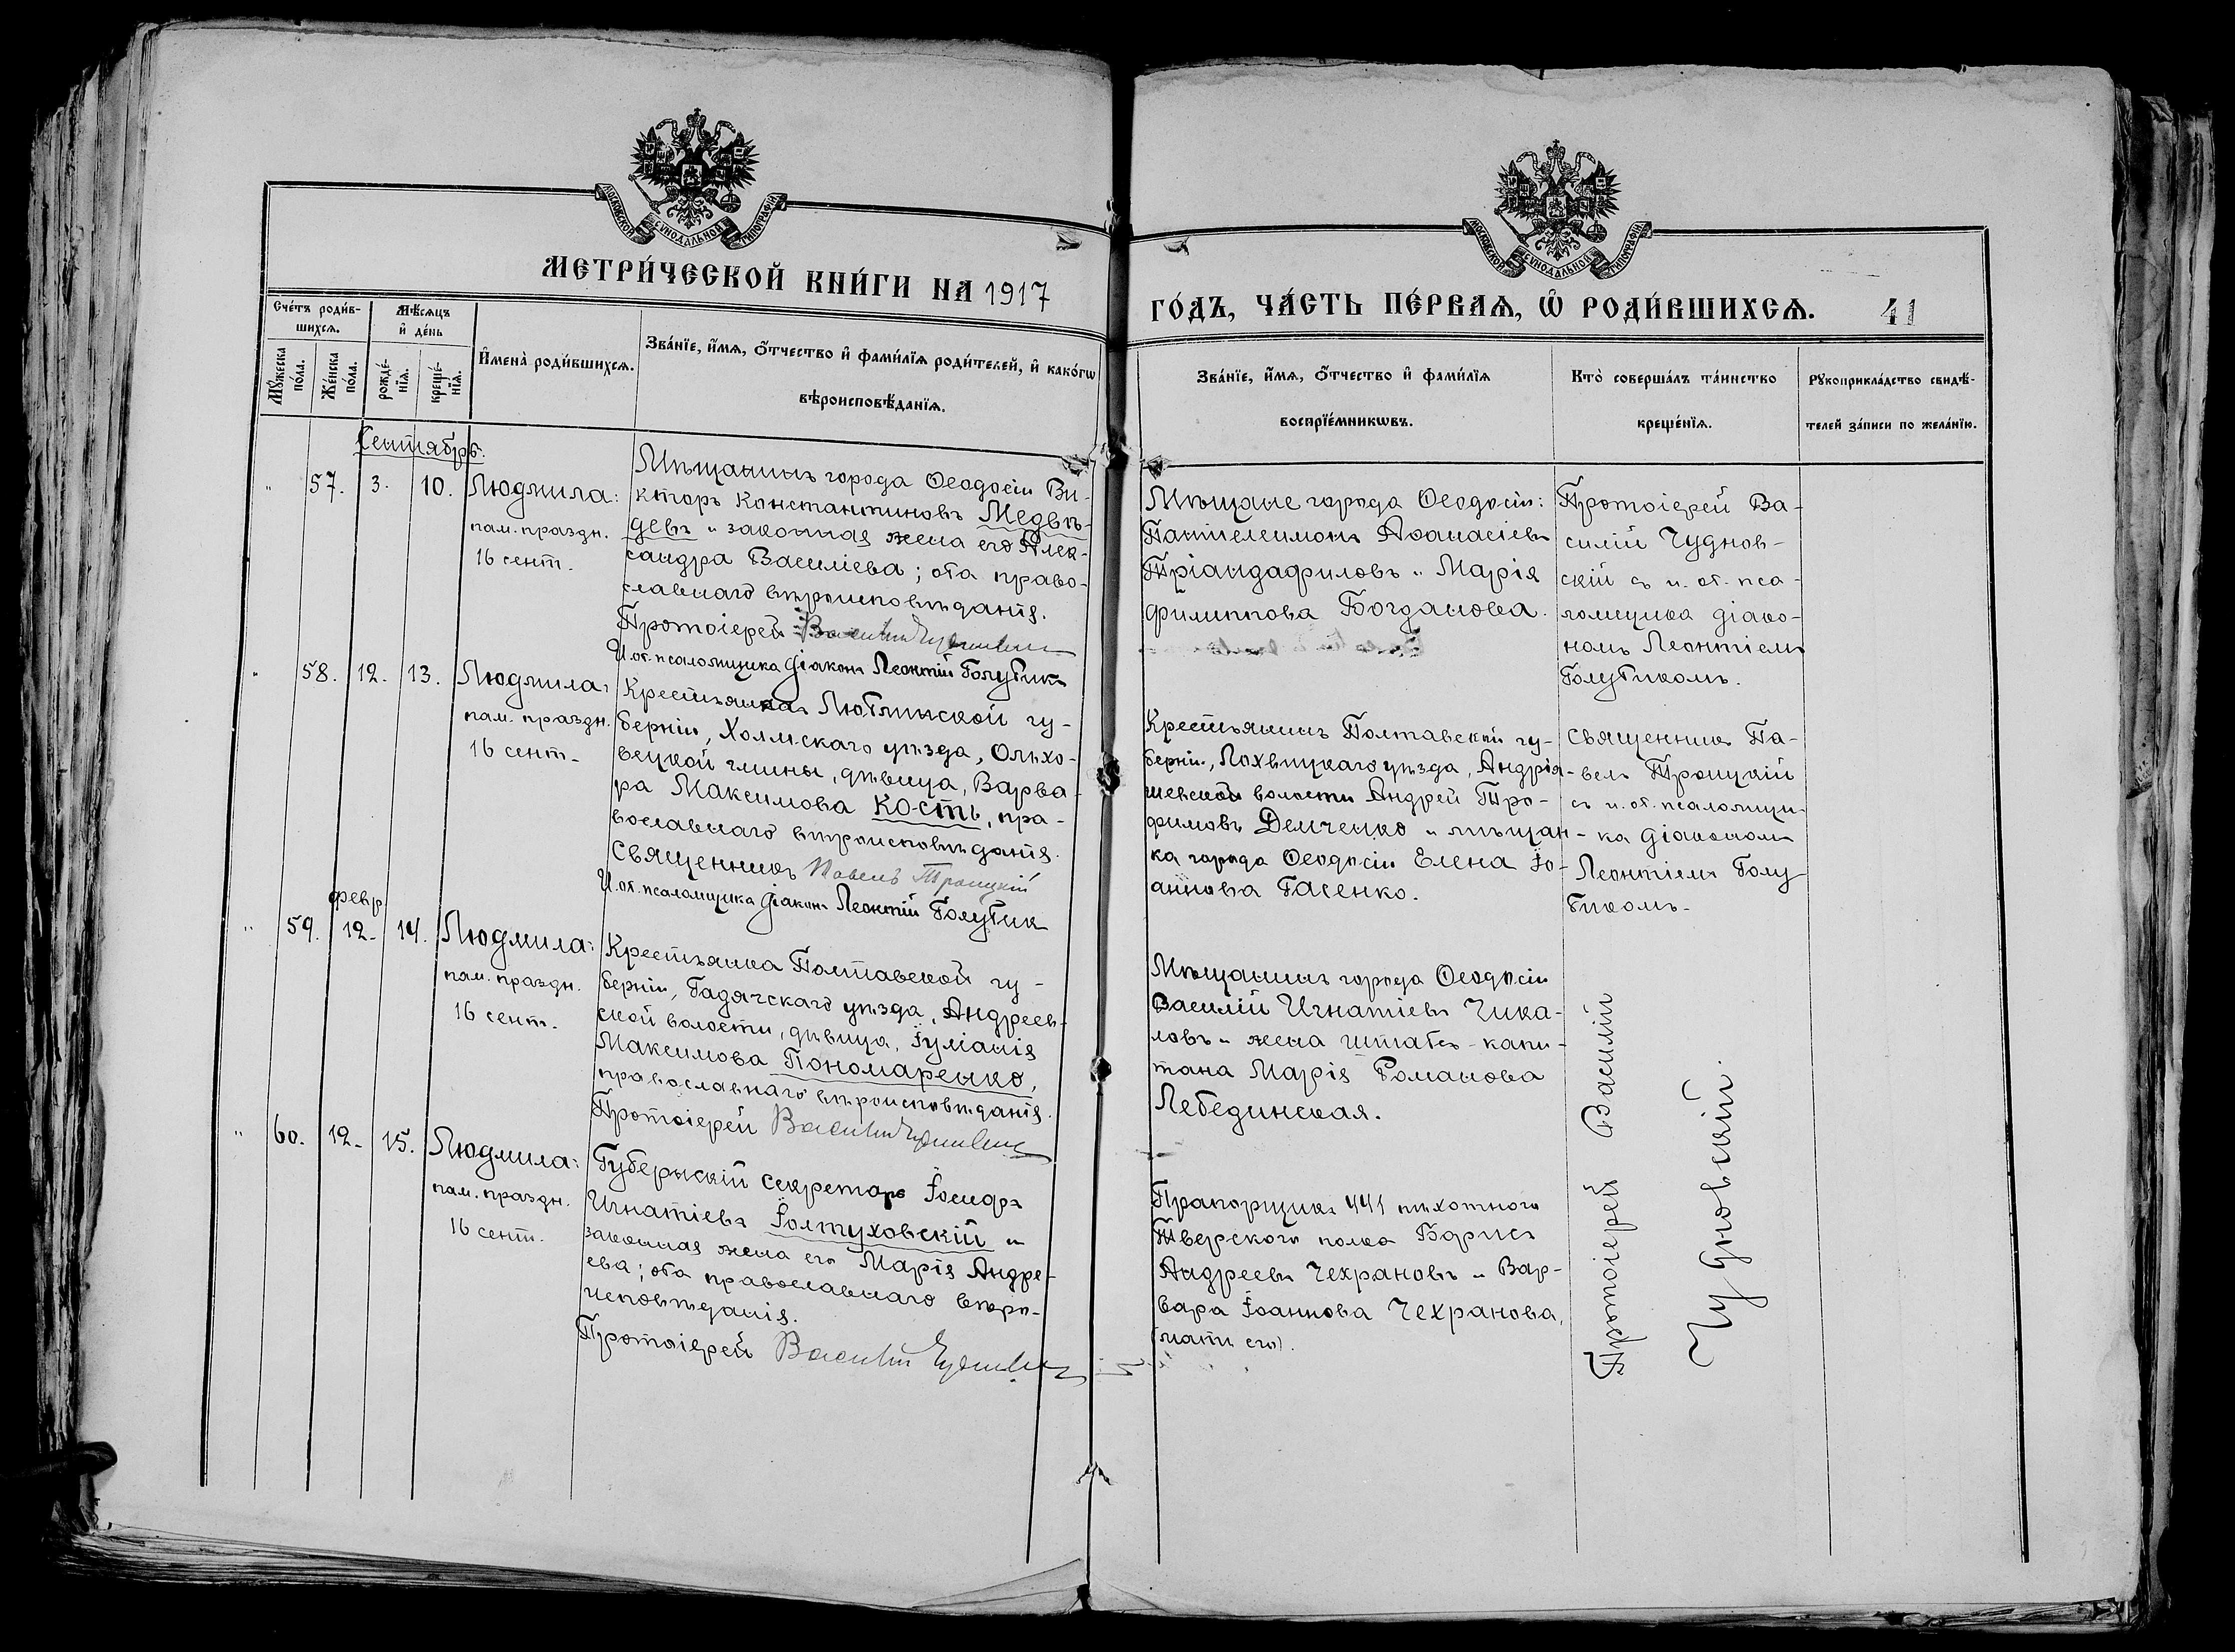 МОСКОВСКОЙ СѴНОДАЛЬНОЙ ТИПОГРАФІИ
МЕТРИ́ЧЕСКОЙ КНИ́ГИ НА 1917
Сче́тъ роди́в-
шихсѧ.
Мꙋ́жеска
по́ла.
Же́нска
по́ла.
Мѣ́сѧцъ
и҆ де́нь
рожде́-
нїѧ.
креще́-
нїѧ.
И҆мена̀ роди́вшихсѧ.
Зва́нїе, и҆́мѧ, ѻ҆́тчество и҆ фами́лїѧ роди́телей, и҆ како́гѡ
вѣроисповѣ́данїѧ.
Сентябрь.
" 57. 3. 10. Людмила:
пам. праздн.
16 сент.
Мѣщанинъ города Ѳеодосіи Ви-
кторъ Константиновъ Медвѣ-
девъ и законная жена его Алек-
сандра Василіева; оба право-
славнаго вѣроисповѣданія.
Протоіерей Василій Чудновскій
И. об. псаломщика діаконъ Леонтій Голубикъ
" 58. 12. 13. Людмила:
пам. праздн.
16 сент.
Крестьянка Люблинской гу-
берніи, Холмскаго уѣзда, Ольхо-
вецкой гмины, дѣвица, Варва-
ра Максимова Кость, пра-
вославнаго вѣроисповѣданія.
Священникъ Павелъ Троицкій
И. об. псаломщика діаконъ Леонтій Голубик
февр.
" 59. 12. 14. Людмила:
пам. праздн.
16 сент.
Крестьянка Полтавской гу-
берніи, Гадячскаго уѣзда, Андреев-
ской волости, дѣвица, Іуліанія
Максимова Пономаренко,
православнаго вѣроисповѣданія.
Протоіерей Василій Чудновскій
" 60. 12. 15. Людмила:
пам. праздн.
16 сент.
Губернскій секретарь
Игнатіевъ Іолтуховскій и
законная жена его Марія Андре-
ева; оба православнаго вѣро-
исповѣданія.
Протоіерей Василій Чудновскій
МОСКОВСКОЙ СѴНОДАЛЬНОЙ ТИПОГРАФІИ
ГО́ДЪ, ЧА́СТЬ ПЕ́РВАѦ, Ѡ҆ РОДИ́ВШИХСѦ. 41
Зва́нїе, и҆́мѧ, ѻ҆́тчество и҆ фами́лїѧ
воспрїе́мникѡвъ.
Кто̀ соверша́лъ та́инство
креще́нїѧ.
Рꙋкоприкла́дство свидѣ́-
телей за́писи по жела́нїю.
Мѣщане города Ѳеодосіи:
Пантелеимонъ Аѳанасіевъ
Тріандафиловъ и Марія
Филиппова Богданова.
Протоіерей Ва-
силій Чуднов-
скій съ и. об. пса-
ломщика діако-
номъ Леонтіемъ
Голубикомъ.
Крестьянинъ Полтавской гу-
берніи, Лохвицкаго уѣзда, Андрія-
шевской волости Андрей Тро-
фимовъ Демченко и мѣщан-
ка города Ѳеодосіи Елена Іо-
аннова Гасенко.
Священникъ Па-
велъ Троицкій
съ и. об. псаломщи-
ка діакономъ
Леонтіемъ Голу-
бикомъ.
Мѣщанинъ города Ѳеодосіи
Василій Игнатіевъ Чика-
ловъ и жена штабсъ-капи-
тана Марія Романова
Лебединская.
Прапорщикъ 441 пѣхотного
Тверского полка Борисъ
Андреевъ Чехрановъ и Вар-
вара Іоаннова Чехранова,
(мать его).
Протоіерей Василій
Чудновскій.